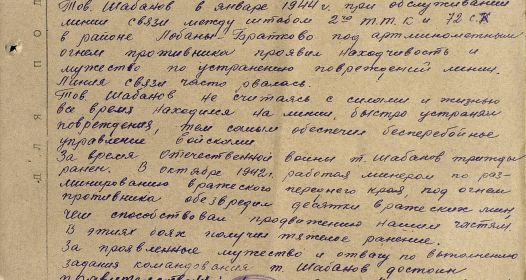 Тов. Шабанов в январе 1944 г. при обслуживании
линии связи между штабом 2го т.т.к и 72 с.к
в районе Лобаны-Братково под артминометным
огнем противника проявил находчивость и
мужество по устранению повреждений линии.
Линия связи часто рвалась.
Тов. Шабанов не считаясь с силами и жизнью
все время находился на линии, быстро устранял
повреждения, тем самым обеспечил бесперебойное
управление войсками.
За время Отечественной войны т. Шабанов трижды
ранен. В октябре 1942 г. работая минером по раз-
минированию вражеского переднего края, под огнем
противника обезвредил десятки вражеских мин,
чем способствовал продвижению нашим частям.
В этих боях получил тяжелое ранение.
За проявленные мужество и отвагу по выполнению
задания командования т. Шабанов достоин
ДЛЯ ПОД